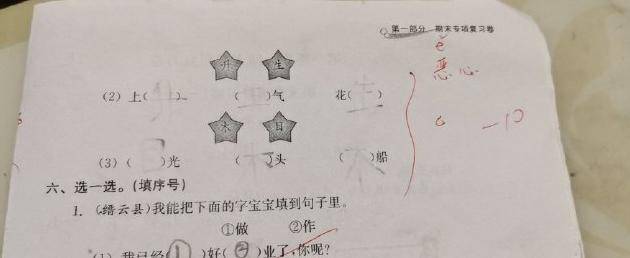 第一部分 期末专项复习卷
ě
恶心
升 生
(2) 上( )、 ( )气 花( )
一口
木 目
(3) ( )光 ( )头 ( )船
六、选一选。(填序号)
1. (缙云县)我能把下面的字宝宝填到句子里。
①做 ②作
(1) 我已经( ① )好( ② )业了,你呢?